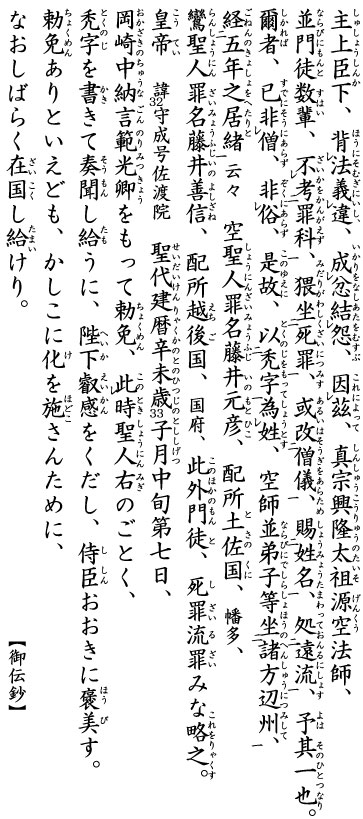 主上臣下、背法義違、成忿結怨、因茲、真宗興隆太祖源空法師、
並門徒数輩、不考罪科、猥坐死罪、或改僧儀、賜姓名、処遠流、予其一也。
爾者、已非僧、非俗、是故、以禿字為姓、空師並弟子等坐諸方辺州、
経五年之居緒 云々 空聖人罪名藤井元彦、配所土佐国、幡多、
鸞聖人罪名藤井善信、配所越後国、国府、此外門徒、死罪流罪みな略之。
皇帝 諱守成号佐渡院 聖代建暦辛未歳子月中旬第七日、
岡崎中納言範光卿をもって勅免、此時聖人右のごとく、
禿字を書きて奏聞し給うに、陛下叡感をくだし、侍臣おおきに褒美す。
勅免ありといえども、かしこに化を施さんために、
なおしばらく在国し給けり。
【御伝鈔】